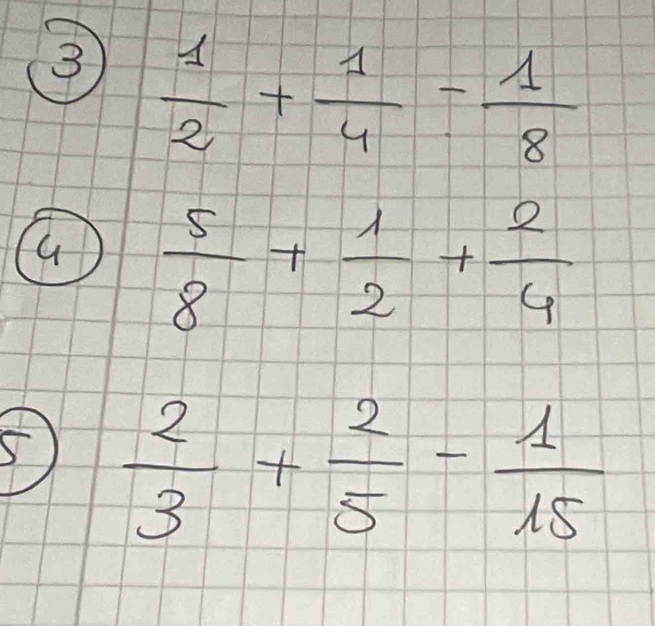 ③ 1/2 + 1/4 - 1/8
④ 5/8 + 1/2 + 2/4
⑤ 2/3 + 2/5 - 1/15